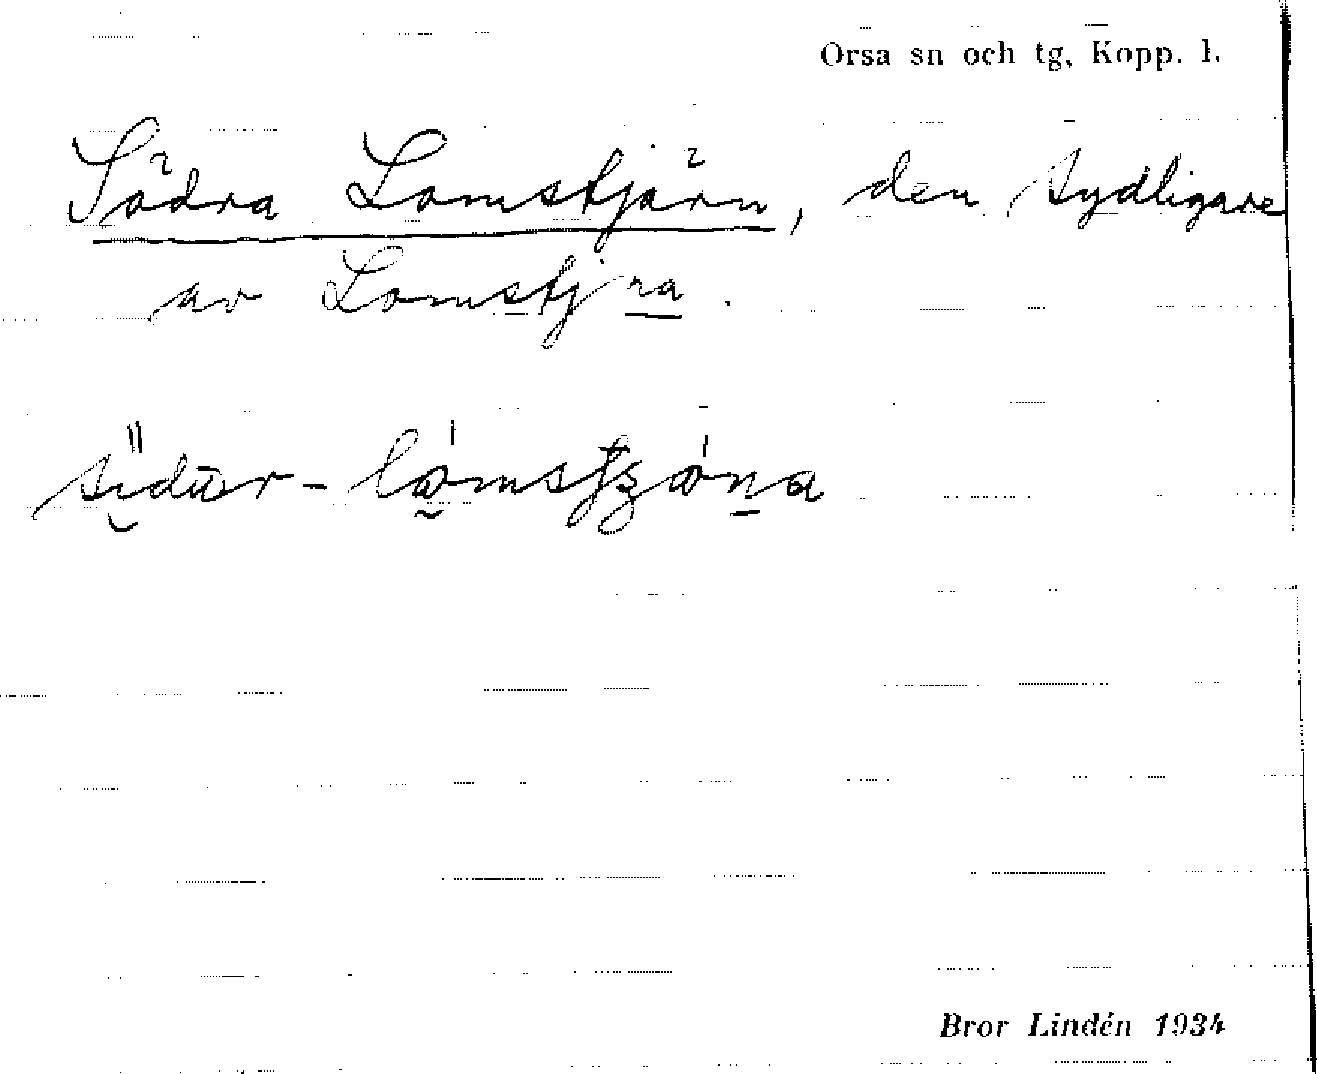 Orsa sn och tg, Kopp. l.
Södra Lomstjärn, den sydligare
av Lomstj:ra.
Bror Lindén 1934